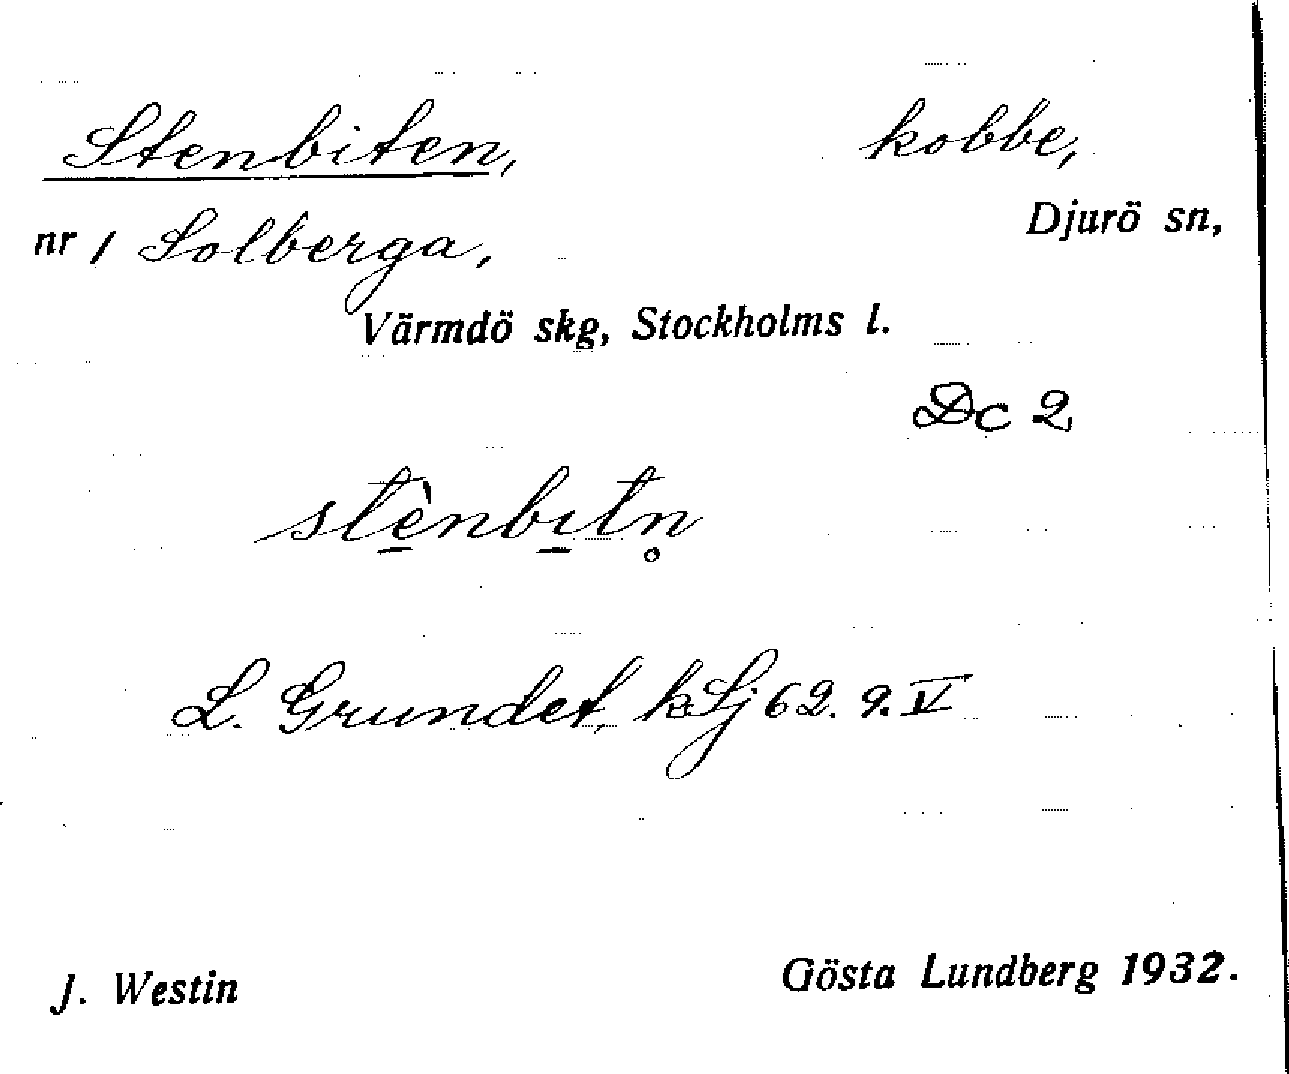 Stenbiten, kobbe,
nr 1 Solberga, Djurö sn,
Värmdö skg, Stockholms l.
Dc 2
stè̠nbı̠tn̥
L. Grundet, k Sj 62. 9. V
J. Westin Gösta Lundberg 1932.